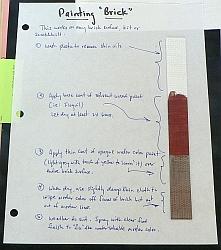 Painting "Brick"
This works on any brick surface, kit or
scratchbuilt.
① Wash plastic to remove skin oils
② Apply base coat of solvent based paint
(ie: Floquil)
Let dry at least 24 hours.
③ Apply thin coat of opaque water color paint
(light grey with touch of yellow to warm it) over
entire brick surface.
④ When dry use slightly damp cloth to
wipe mortar color off faces of brick but not
out of mortar lines.
⑤ Weather to suit. Spray with clear flat
finish to "fix" the water-soluble mortar color.